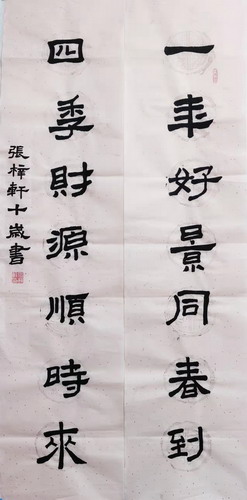 一年好景同春到
四季財源順時來
張梓軒十歲書